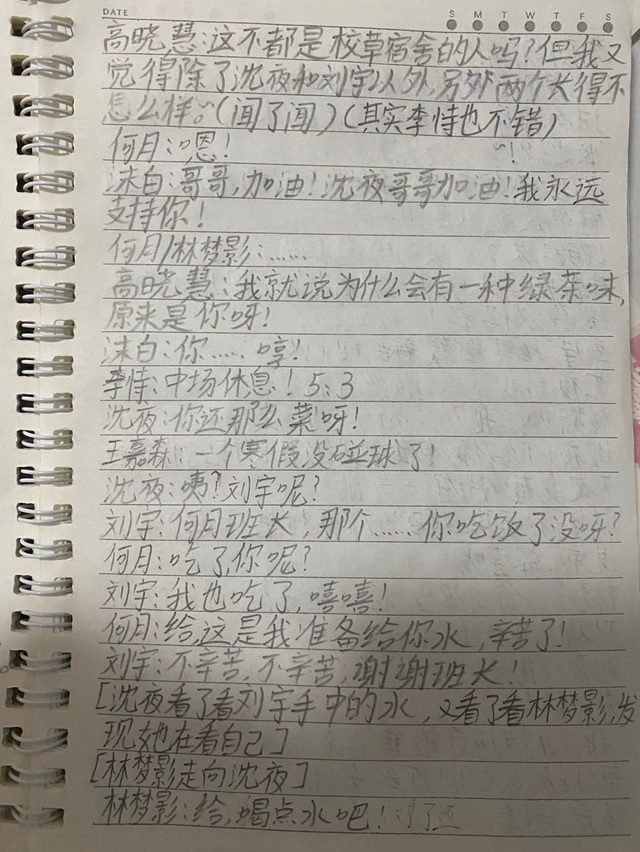 DATE
S M T W T F S
高晓慧:这不都是校草宿舍的人吗?但我又
觉得除了沈夜和刘宇以外,另外两个长得不
怎么样。(闻了闻)(其实李恃也不错)
何月:嗯!
沫白:哥哥,加油!沈夜哥哥加油!我永远
支持你!
何月/林梦影:……
高晓慧:我就说为什么会有一种绿茶味,
原来是你呀!
沫白:你……哼!
李恃:中场休息!5:3
沈夜:你还那么菜呀!
王嘉森:一个寒假没碰球了!
沈夜:咦?刘宇呢?
刘宇:何月班长,那个……你吃饭了没呀?
何月:吃了,你呢?
刘宇:我也吃了,嘻嘻!
何月:给,这是我准备给你水,辛苦了!
刘宇:不辛苦,不辛苦,谢谢班长!
[沈夜看了看刘宇手中的水,又看了看林梦影,发
现她在看自己]
[林梦影走向沈夜]
林梦影:给,喝点水吧!